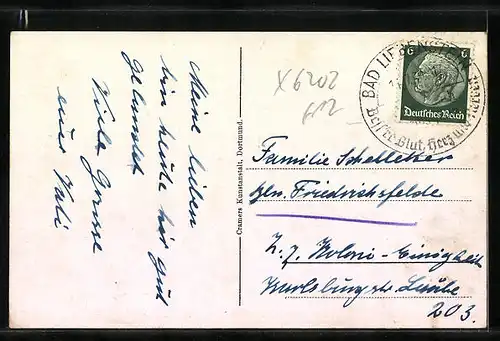 Meine Lieben
bin heute hier gut
gelandet
Viele Grüsse
euer Vati
Cramers Kunstanstalt, Dortmund.
X6202
BAD LIEBENSTEIN
Blut, Herz und Nerven
6
Deutsches Reich
Familie Schelletzer
bln. Friedrichsfelde
Z. Z. Kolonie Einigkeit
Laube
203.